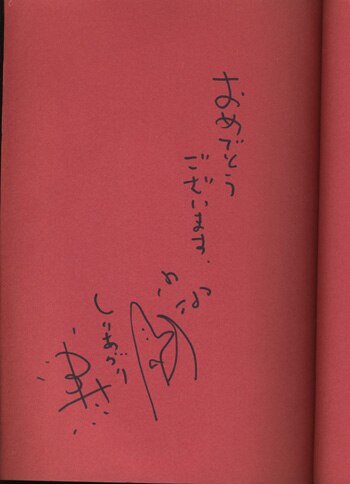 おめでとう
ございます.
しりあがり
寿